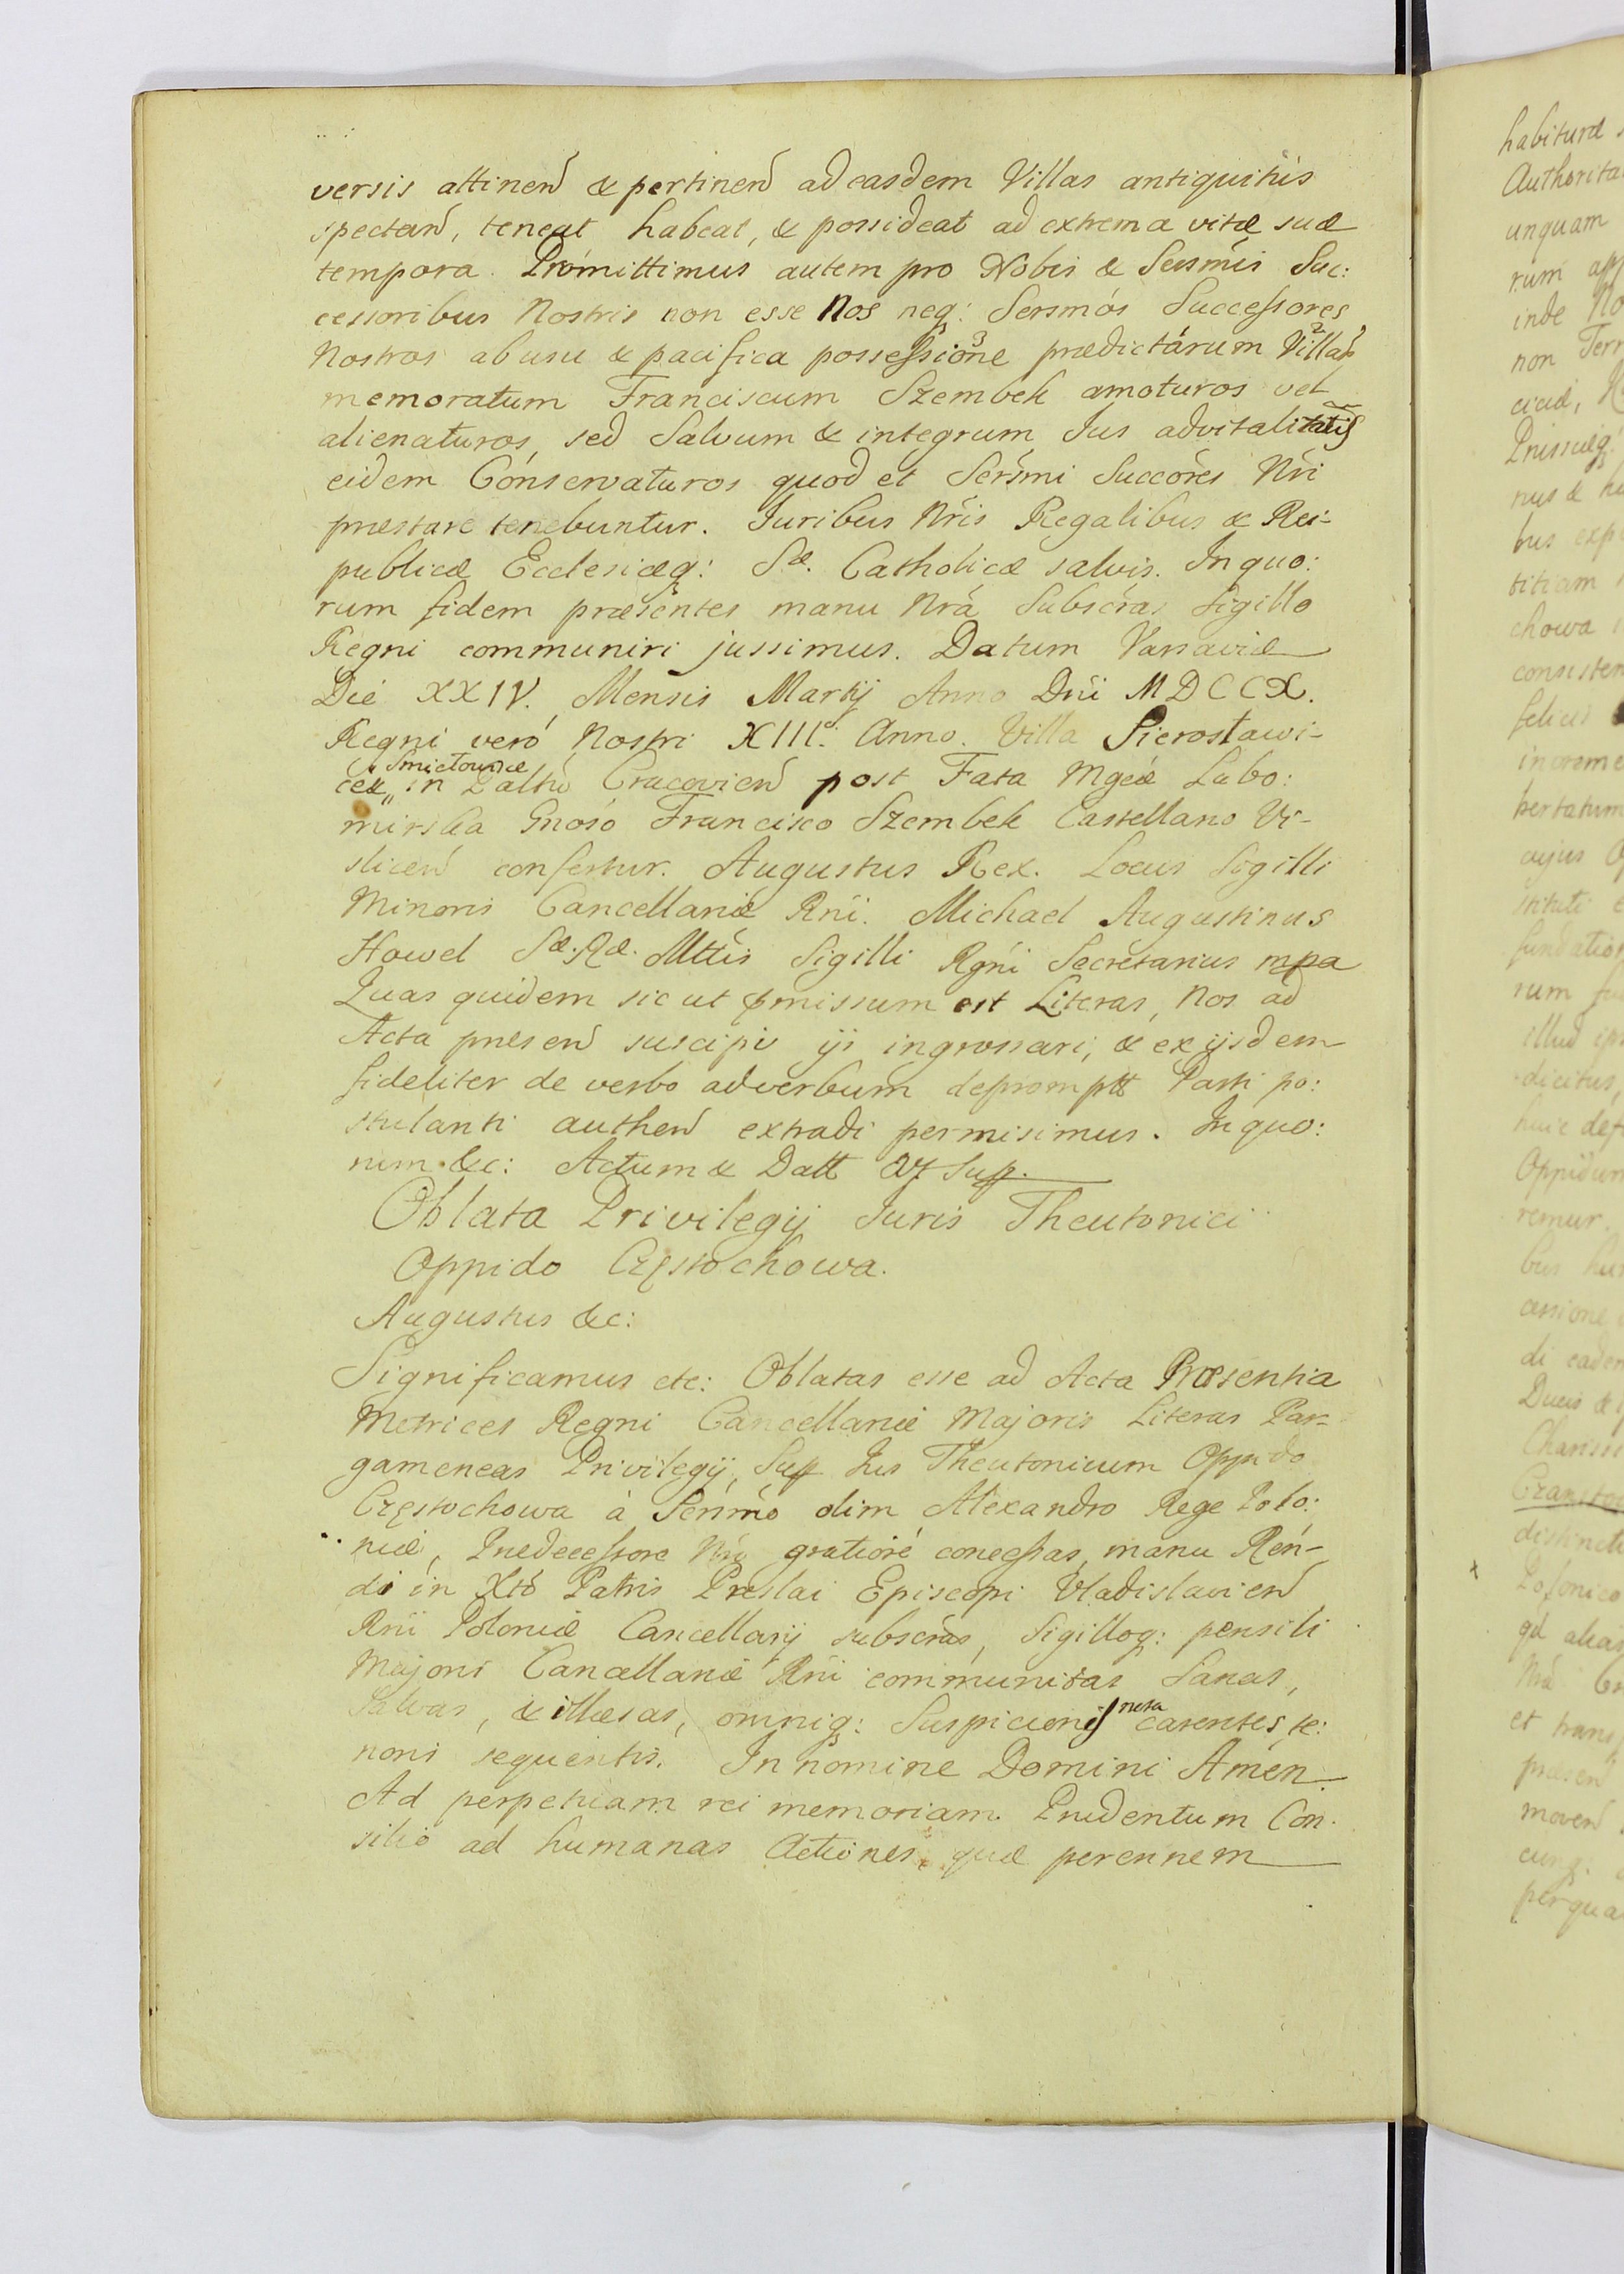 versis attinen̄ & pertinen̄ ad easdem Villas antiquitùs
spectan̄, teneat habeat, & possideat ad extrema vitæ suæ
tempora. Promittimus autem pro Nobis & Sersmis Suc:
cessoribus Nostris non esse Nos neq: Sersmos Successores
Nostros ab usu & pacifica possessione prædictarum Villar
memoratum Franciscum Szembek amoturos vel
alienaturos, sed Salvum & integrum Jus advitalitatis
eidem Conservaturos quod et Sersmi Succores Nri
præstare tenebuntur. Juribus Nris Regalibus & Rei-
publicæ Ecclesiæq: Sæ. Catholicæ salvis. In quo:
rum fidem præsentes manu Nrá Subscras Sigillo
Regni communiri jussimus. Datum Varsaviæ
Die XXIV. Mensis Martij Anno Dni MDCCX.
Regni veró Nostri XIII. Anno. Villa Sierosławi-
ce & Smiełowice in Paltu Cracovien̄ post Fata Mgcæ Lubo:
mirska Gnoso Francisco Szembek Castellano Vi-
slicen̄ confertur. Augustus Rex. Locus Sigilli
Minoris Cancellariæ Rni. Michael Augustinus
Howel Sæ. Ræ. Mttis Sigilli Rgni Secretarius mpa
Quas quidem sic ut pmissum est Literas, Nos ad
Acta præsen̄ suscipi ijs ingrossari, & ex ijsdem
fideliter de verbo ad verbum depromptt Parti po:
stulanti authen̄ extradi permisimus. In quo:
rum &c: Actum & Datt ut Sup.
Oblata Privilegij Juris Theutonici
Oppido Częstochowa.
Augustus &c:
Significamus etc: Oblatas esse ad Acta Præsentia
Metrices Regni Cancellariæ Majoris Literas Par-
gameneas Privilegij, Sup Jus Theutonicum Oppido
Częstochowa à Sersmo olim Alexandro Rege Polo:
niæ, Prædecessore Nro gratiore concessas, manu Ren-
di in Xto Patris Preslai Episcopi Vladislavien̄
Rni Poloniæ Cancellarij subscras, Sigilloq: pensili
Majoris Cancellariæ Rni communitas Sanas,
Salvas, & illæsas, omniq: Suspicionis nota carentes, te:
noris sequentis. In nomine Domini Amen.
Ad perpetuam rei memoriam. Prudentum Con-
silio ad humanas Actiones, quæ perennem